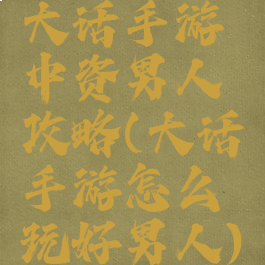 大话手游
中资男人
攻略(大话
手游怎么
玩好男人)